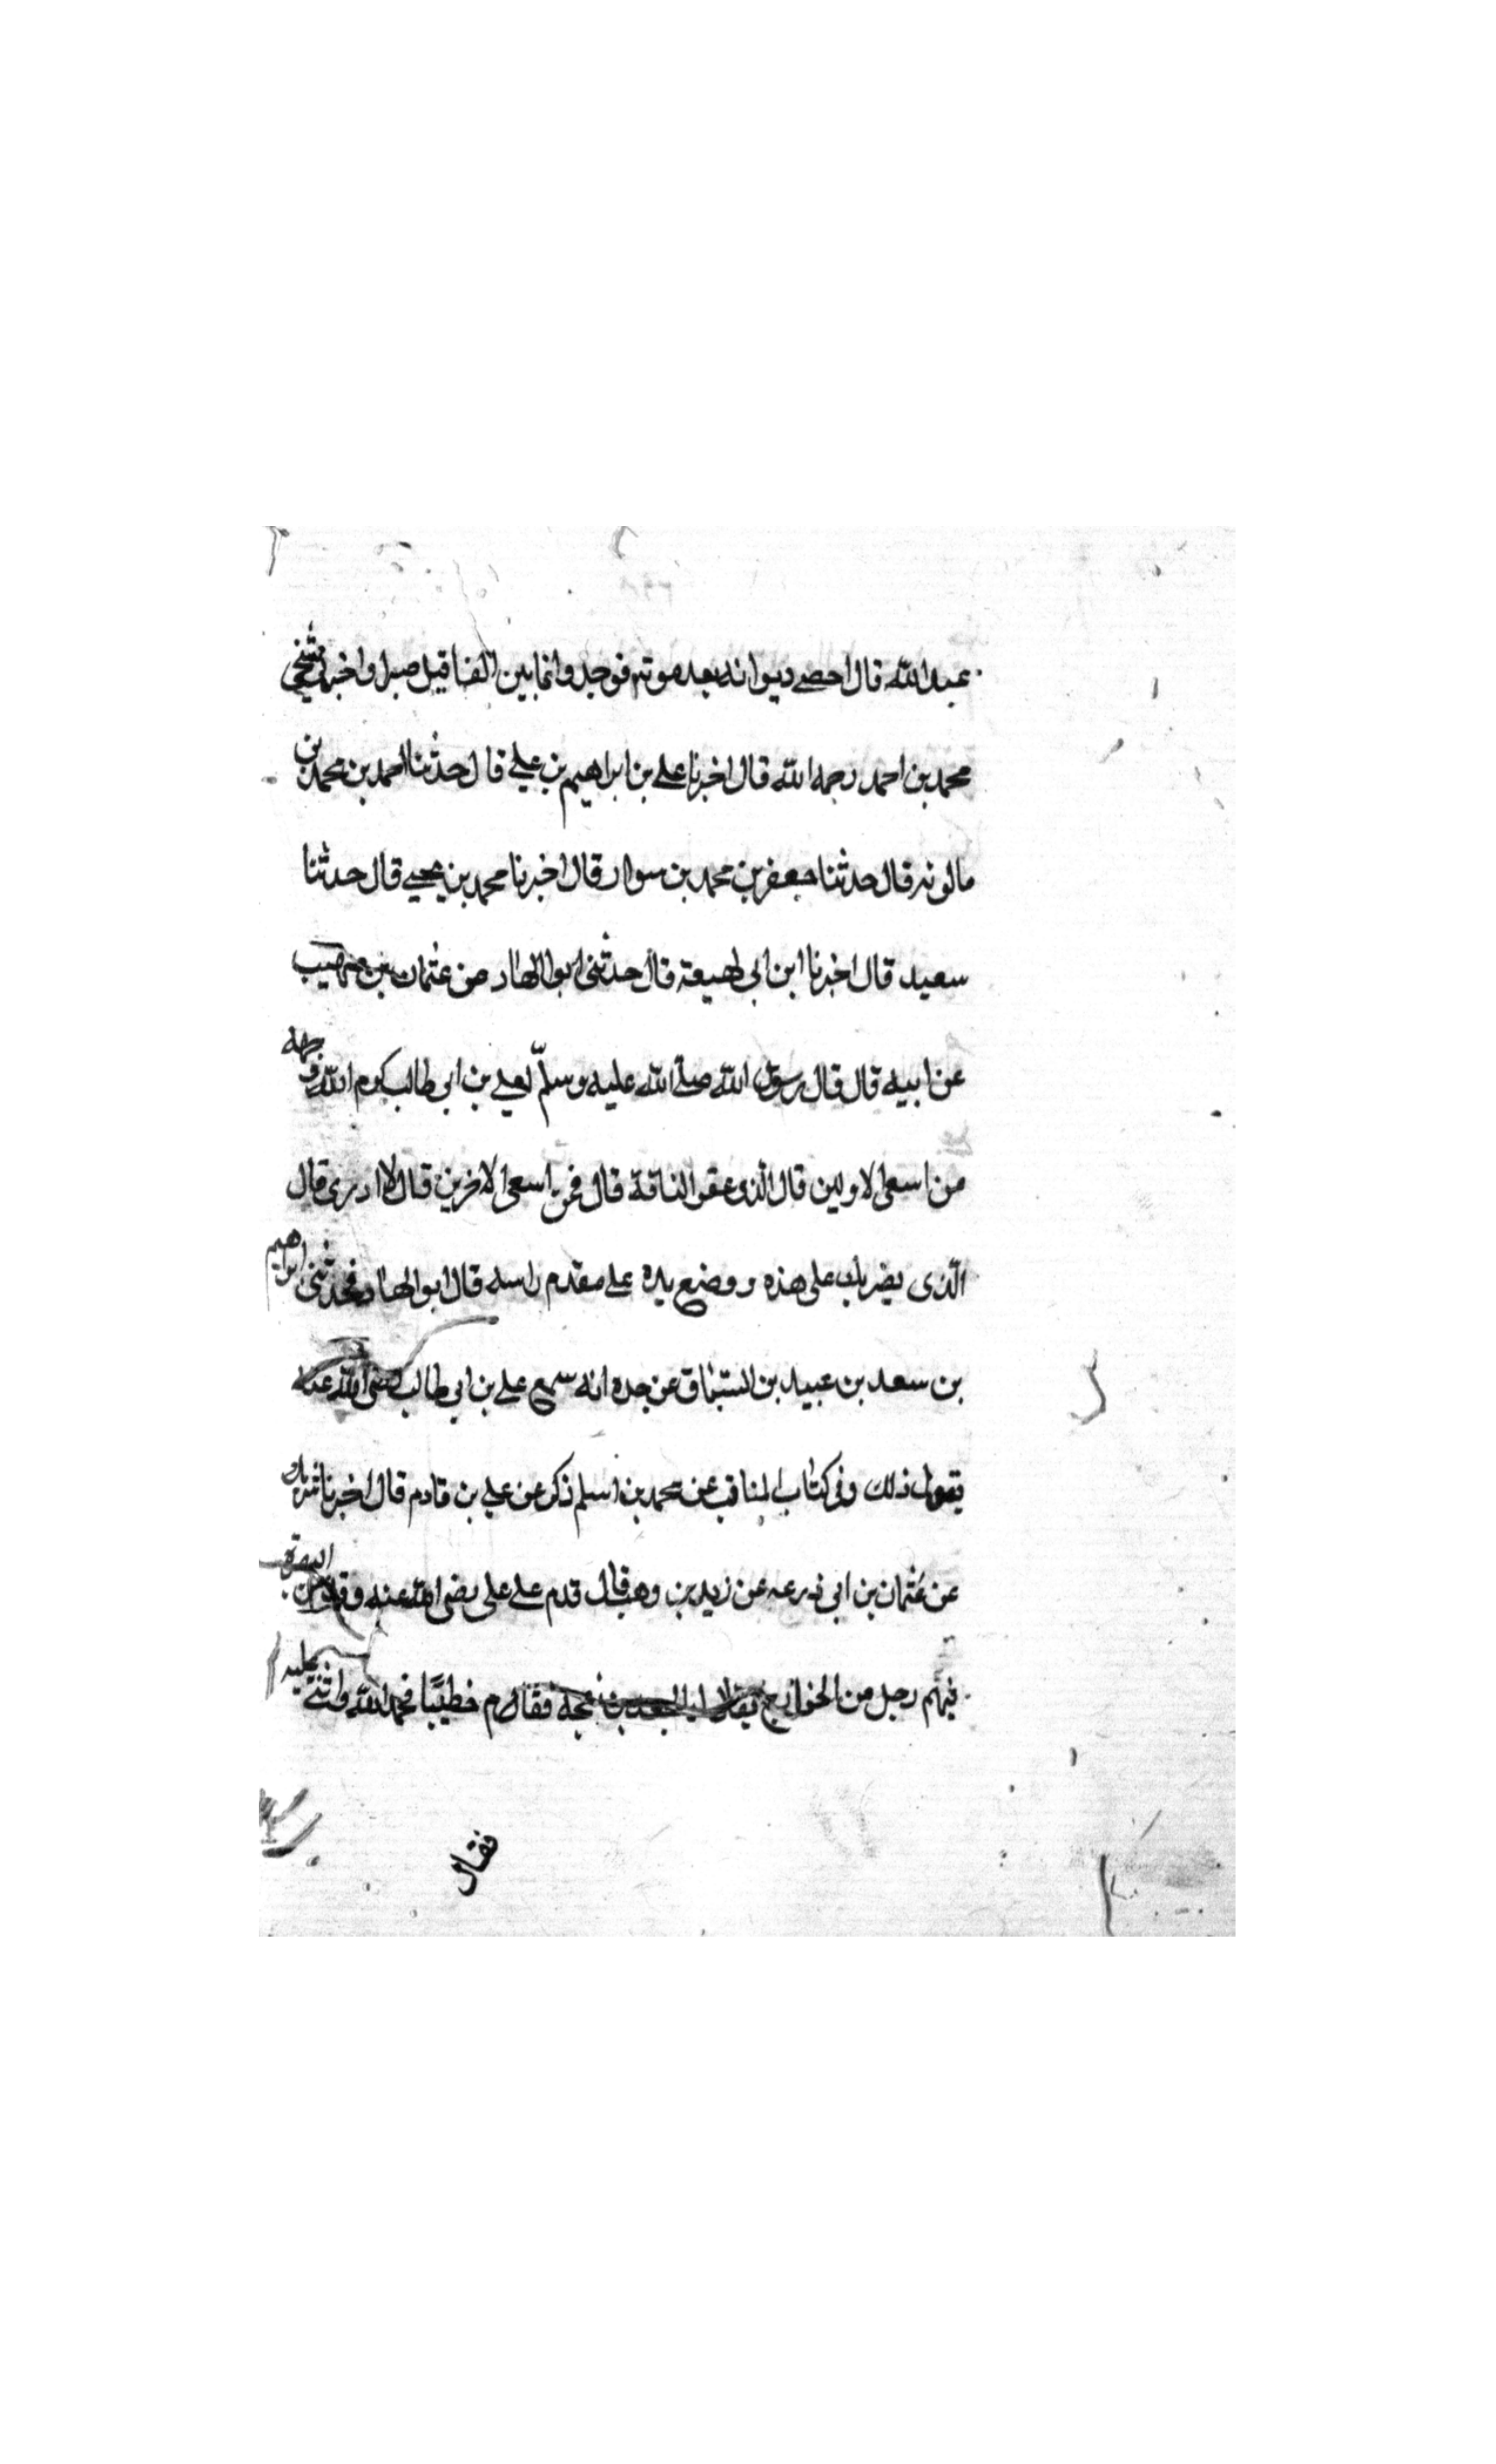 عبدالله قال احصى ديوانه بعد موته فوجد وا ثمانين الفا قيل صبرا واخبرنا شيخي
محمد بن احمد رحمه الله قال اخبرنا علي بن ابراهيم بن علي قال حدثنا احمد بن محمد بن
مالويه قال حدثنا جعفر بن محمد بن سوار قال اخبرنا محمد بن يحيى قال حدثنا
سعيد قال اخبرنا ابن ابي لهيعة قال حدثني ابو الهاد عن عثمان بن صهيب
عن ابيه قال قال رسول الله صلى الله عليه وسلم لعلي بن ابي طالب كرم الله وجهه
من اسعى الاولين قال الذي عقر الناقة قال فمن اسعى الاخرين قال لا ادري قال
الذي يضربك على هذه ووضع يده على مقدم راسه قال ابو الهاد فحدثني ابراهيم
بن سعد بن عبيد بن السباق عن جده انه سمع علي بن ابي طالب رضي الله عنه
يقول ذلك وفي كتاب المناقب عن محمد بن اسلم ذكر عن علي بن قادم قال اخبرنا شريك
عن عثمان بن ابي زرعه عن زيد بن وهب قال قدم على علي رضي الله عنه وفد من البصرة
فيهم رجل من الخوارج يقال له الجعد بن نعجه فقام خطيبًا فحمد الله واثنى عليه
فقال